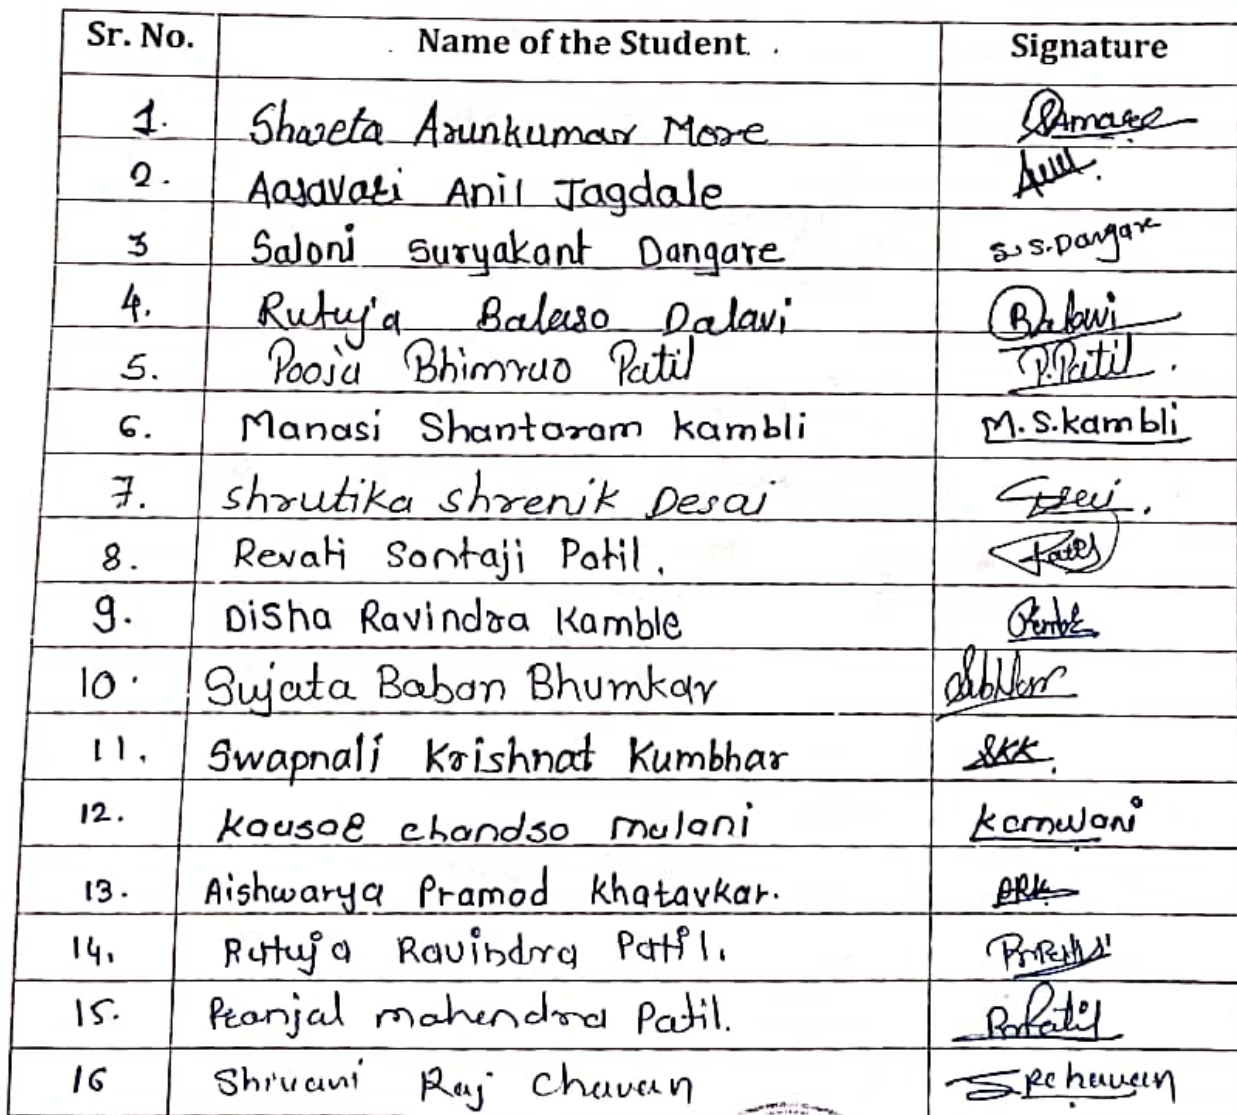 Sr. No. Name of the Student Signature
1. Shareta Arunkumar More
2. Aasavari Anil Jagdale
3 Saloni Suryakant Dangare S. S. Dangare
4. Rutuja Balaso Dalavi
5. Pooja Bhimrao Patil P. Patil.
6. Manasi Shantaram kambli M. S. kambli
7. shrutika shrenik Desai
8. Revati Santaji Patil.
9. Disha Ravindra Kamble
10. Sujata Baban Bhumkar
11. Swapnali Krishnat Kumbhar SKK.
12. Kausar chandso mulani
13. Aishwarya Pramod Khatavkar. PRK
14. Rutuja Ravindra Patil.
15. Pranjal mahendra Patil.
16 Shivani Raj Chavan